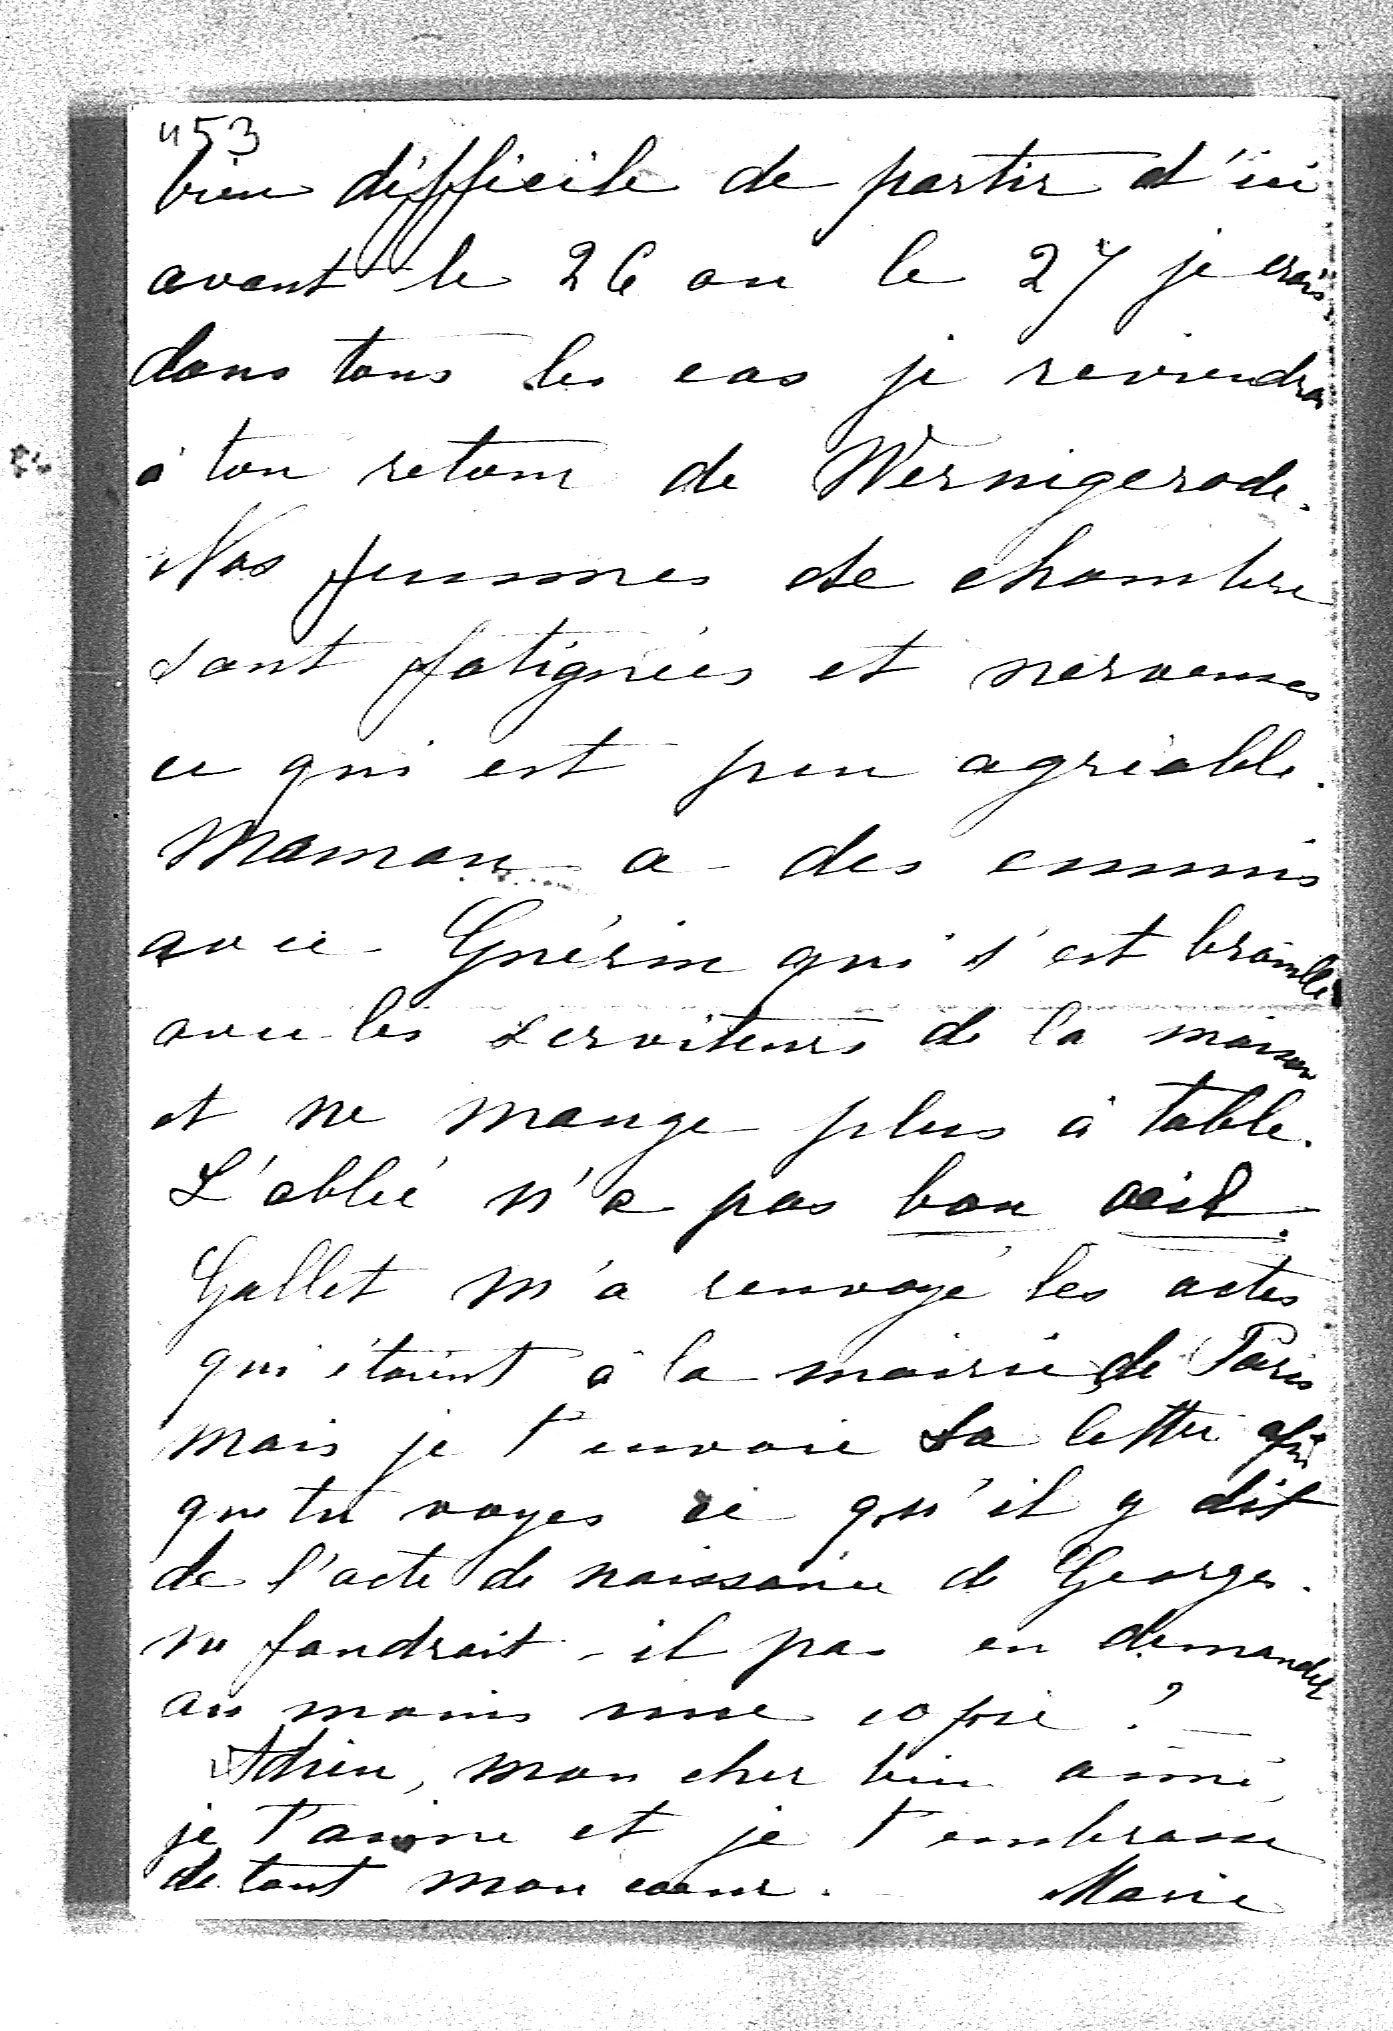 453
bien difficile de partir d'ici
avant le 26 ou le 27 je crois.
dans tous les cas je reviendrai
à ton retour de Wernigerode.
Nos femmes de chambre
sont fatiguées et nerveuses
ce qui est peu agréable.
Maman a des ennuis
avec Guérin qui s'est brouillé
avec les serviteurs de la maison
et ne mange plus à table.
L'abbé n'a pas bon œil.
Gallet m'a renvoyé les actes
qui étaient à la mairie de Paris
mais je t'envoie sa lettre afin
que tu voyes ce qu'il y dit
de l'acte de naissance de Georges.
ne faudrait-il pas en demander
au moins une copie ?
Adieu, mon cher bien aimé,
je t'aime et je t'embrasse
de tout mon coeur. Marie